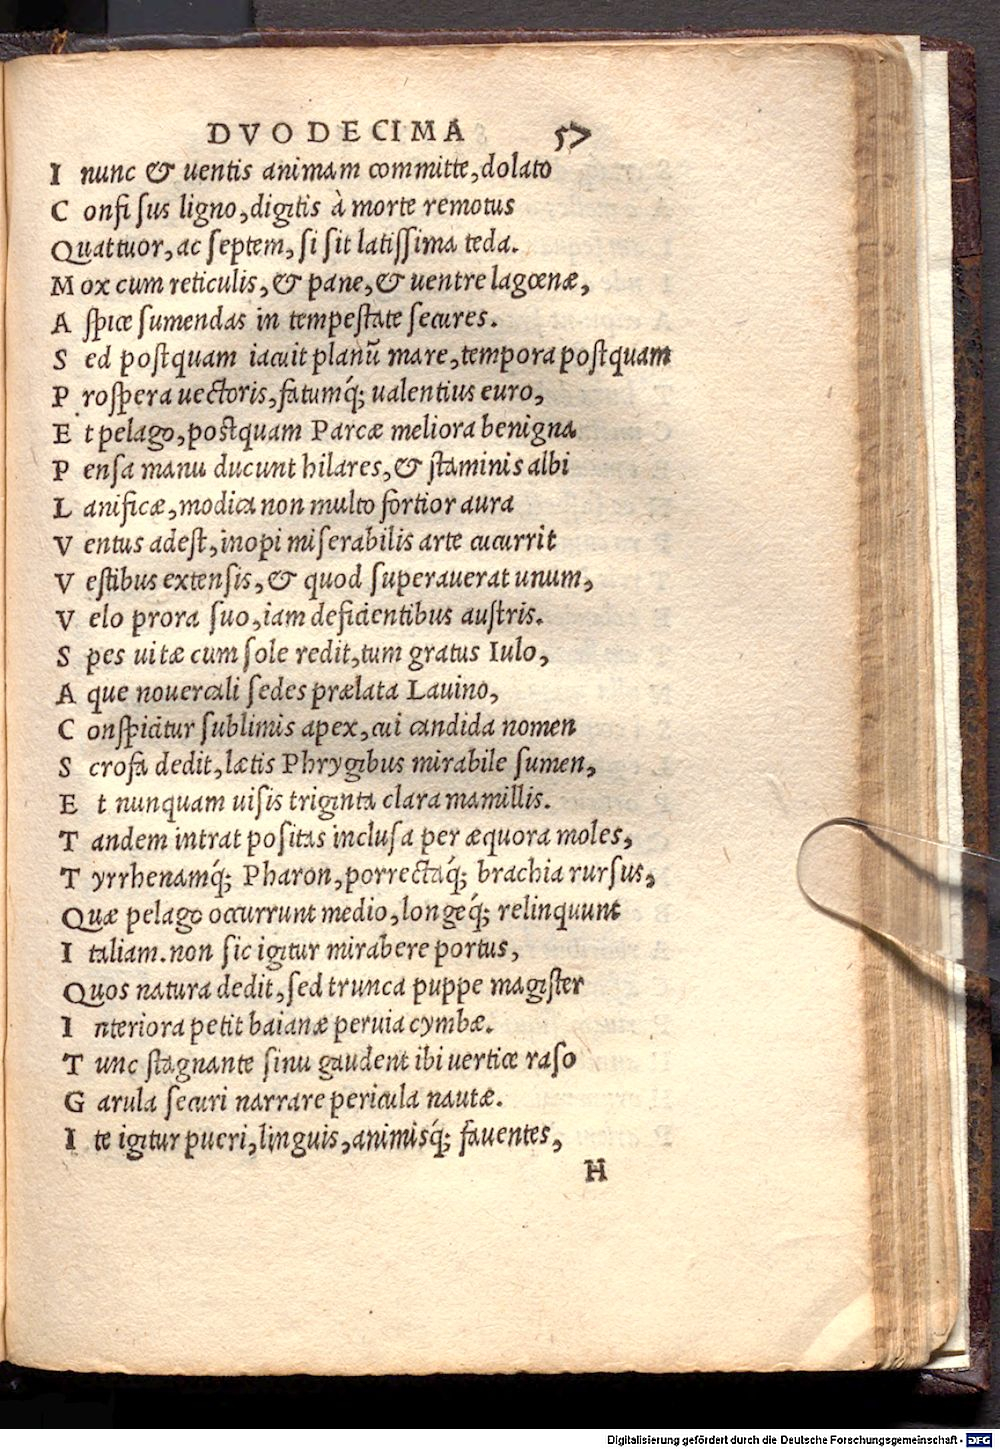 DVODECIMA 57
I nunc & uentis animam committe, dolato
C onfisus ligno, digitis à morte remotus
Quattuor, ac septem, si sit latissima teda.
M ox cum reticulis, & pane, & uentre lagœnæ,
A spice sumendas in tempestate secures.
S ed postquam iacuit planũ mare, tempora postquam
P rospera uectoris, fatumq́; ualentius euro,
E t pelago, postquam Parcæ meliora benigna
P ensa manu ducunt hilares, & staminis albi
L anificæ, modica non multo fortior aura
V entus adest, inopi miserabilis arte cucurrit
V estibus extensis, & quod superauerat unum,
V elo prora suo, iam deficientibus austris.
S pes uitæ cum sole redit, tum gratus Iulo,
A que nouercali sedes prælata Lauino,
C onspicitur sublimis apex, cui candida nomen
S crofa dedit, lætis Phrygibus mirabile sumen,
E t nunquam uisis triginta clara mamillis.
T andem intrat positas inclusa per æquora moles,
T yrrhenamq́; Pharon, porrectaq́; brachia rursus,
Quæ pelago occurrunt medio, longeq́; relinquunt
I taliam. non sic igitur mirabere portus,
Quos natura dedit, sed trunca puppe magister
I nteriora petit baianæ peruia cymbæ.
T unc stagnante sinu gaudent ibi uertice raso
G arula securi narrare pericula nautæ.
I te igitur pueri, linguis, animisq́; fauentes,
H
Digitalisierung gefördert durch die Deutsche Forschungsgemeinschaft - DFG